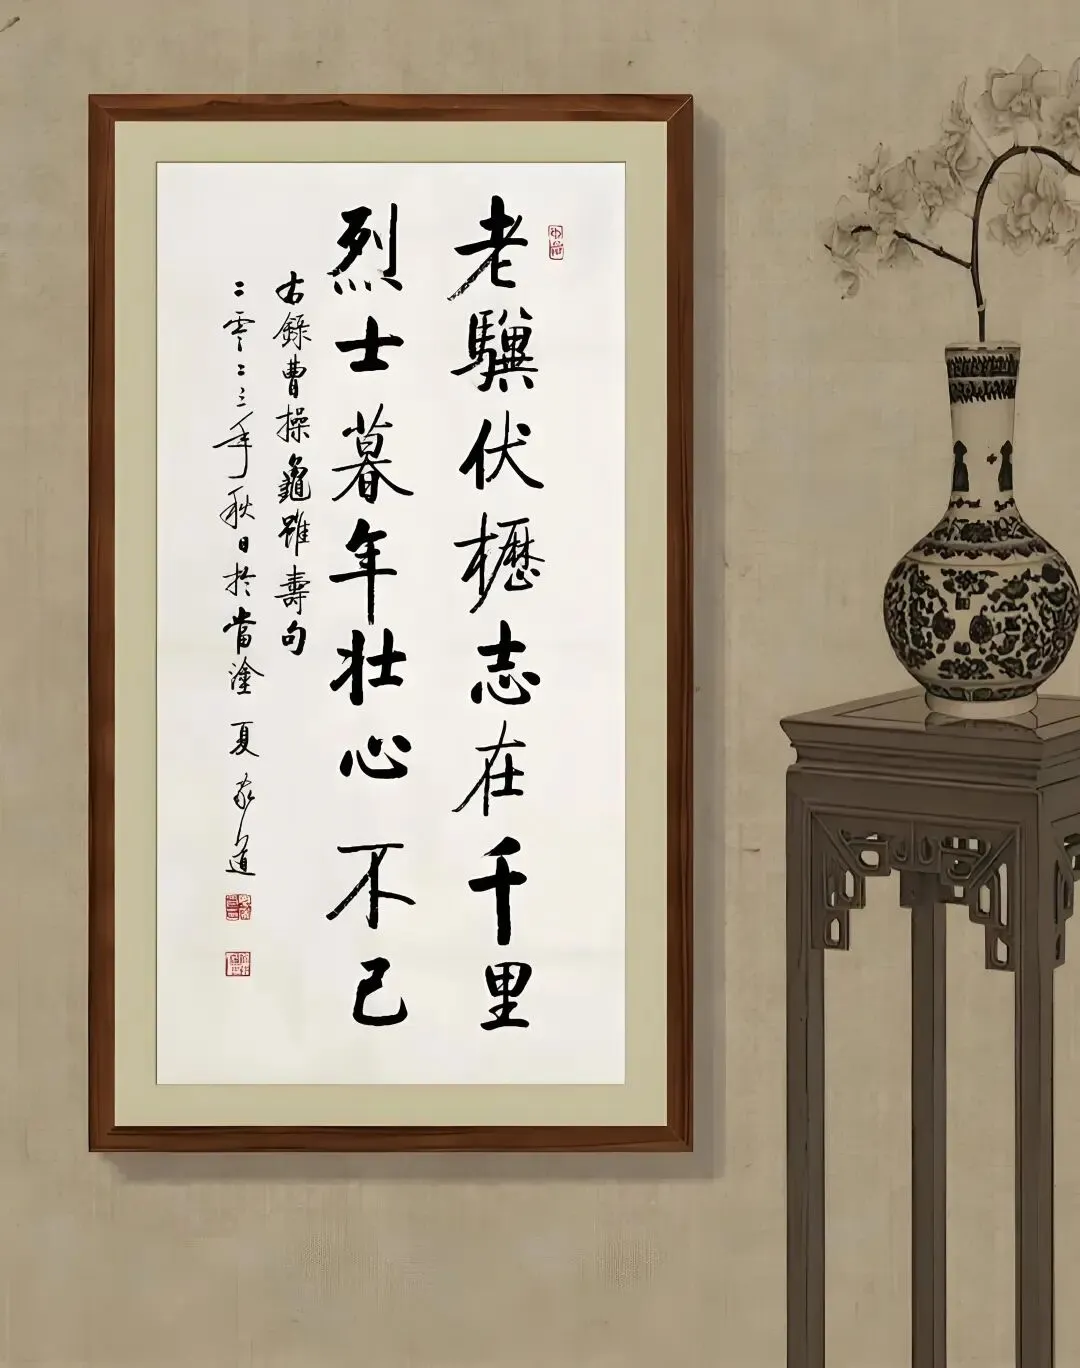 老驥伏櫪志在千里
烈士暮年壯心不已
右錄曹操龜雖壽句
二零二三年秋日於當塗 夏家道